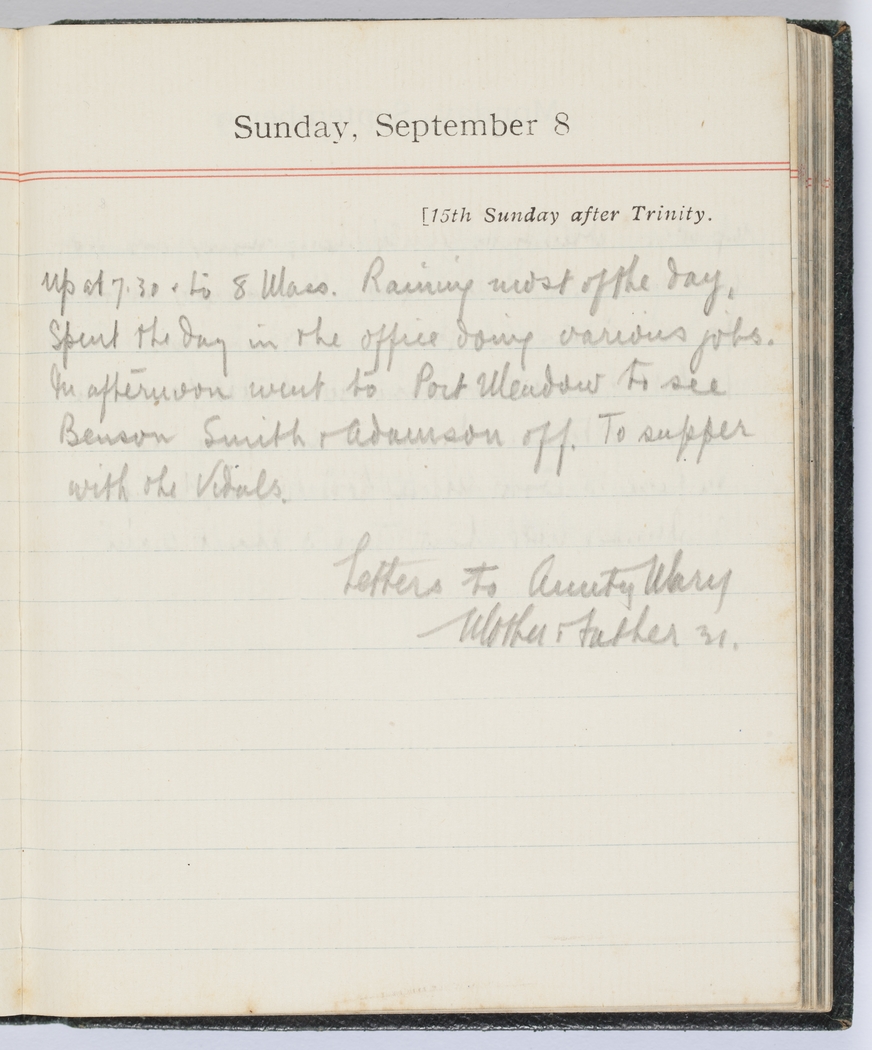 Sunday, September 8
[15th Sunday after Trinity.
Up at 7.30 & to 8 Mass. Raining most of the day,
Spent the day in the office doing various jobs.
In afternoon went to Port Meadow to see
Benson Smith & Adamson off. To supper
with the Vidals.
Letters to Aunty Mary
Mother & Father 31.